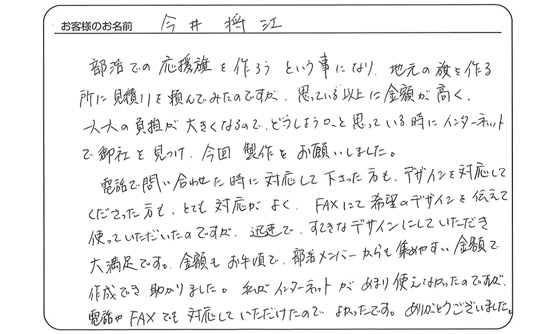 お客様のお名前 今井 将江
部活での応援旗を作ろうという事になり、地元の旗を作る
所に見積りを頼んでみたのですが、思っている以上に金額が高く、
一人一人の負担が大きくなるので、どうしよう。と思っている時にインターネット
で御社を見つけ、今回製作をお願いしました。
電話で問い合わせた時に対応して下さった方も、デザインを対応して
くださった方も、とても対応がよく、FAXにて希望のデザインを伝えて
使っていただいたのですが、迅速で、すてきなデザインにしていただき
大満足です。金額もお手頃で、部活メンバーからも集めやすい金額で
作成でき助かりました。私がインターネットがあまり使えなかったのですが、
電話やFAXでも対応していただけたので、よかったです。ありがとうございました。